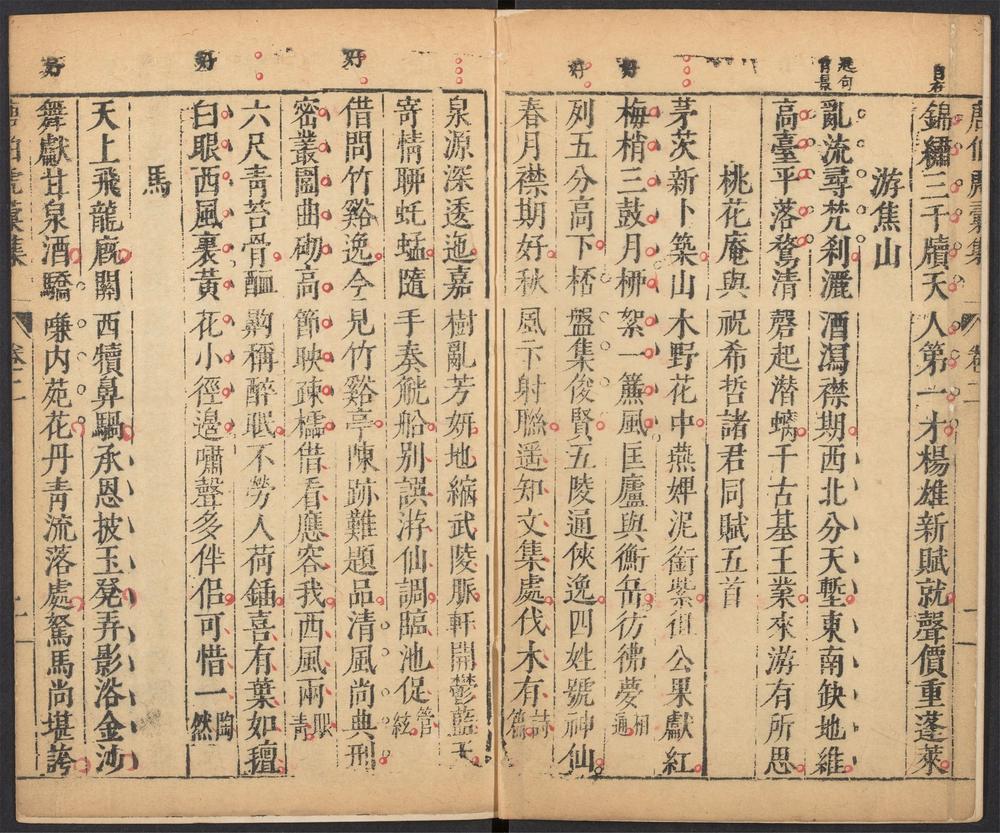 唐伯虎彙集 卷二 一
自在
錦繡三千牘天人第一才楊雄新賦就聲價重蓬萊
游焦山
起句
有景
亂流尋梵刹灑酒瀉襟期西北分天塹東南缺地維
高臺平落鶩清磬起潛螭千古基王業來游有所思
桃花庵與祝希哲諸君同賦五首
茅茨新卜築山木野花中燕婢泥銜紫狙公果獻紅
好
梅梢三鼓月柳絮一簾風匡廬與衡岳彷彿夢相通
好
列五分高下 盤集俊賢五陵通俠逸四姓號神仙
春月襟期好秋風下射聯遥知文集處伐木有詩篇
泉源深逶迤嘉樹亂芳妍地縮武陵脈軒開鬱藍天
寄情聊 蜢隨手奏觥船别誤游仙調臨池促管絃
好
借問竹谿逸今見竹谿亭陳跡難題品清風尚典刑
密叢圍曲砌高節映疎櫺借看應容我西風兩眼青
六尺靑苔骨 稱醉眠不勞人荷鍤喜有葉如氊
好
白眼西風裏黄花小徑邊嘯聲多伴侣可惜一陶然
馬
天上飛龍廐關西犢鼻騧承恩披玉凳弄影浴金沙
好
舞獻甘泉酒驕嗛内苑花丹青流落處駑馬尚堪誇
唐伯虎彙集 卷二 二